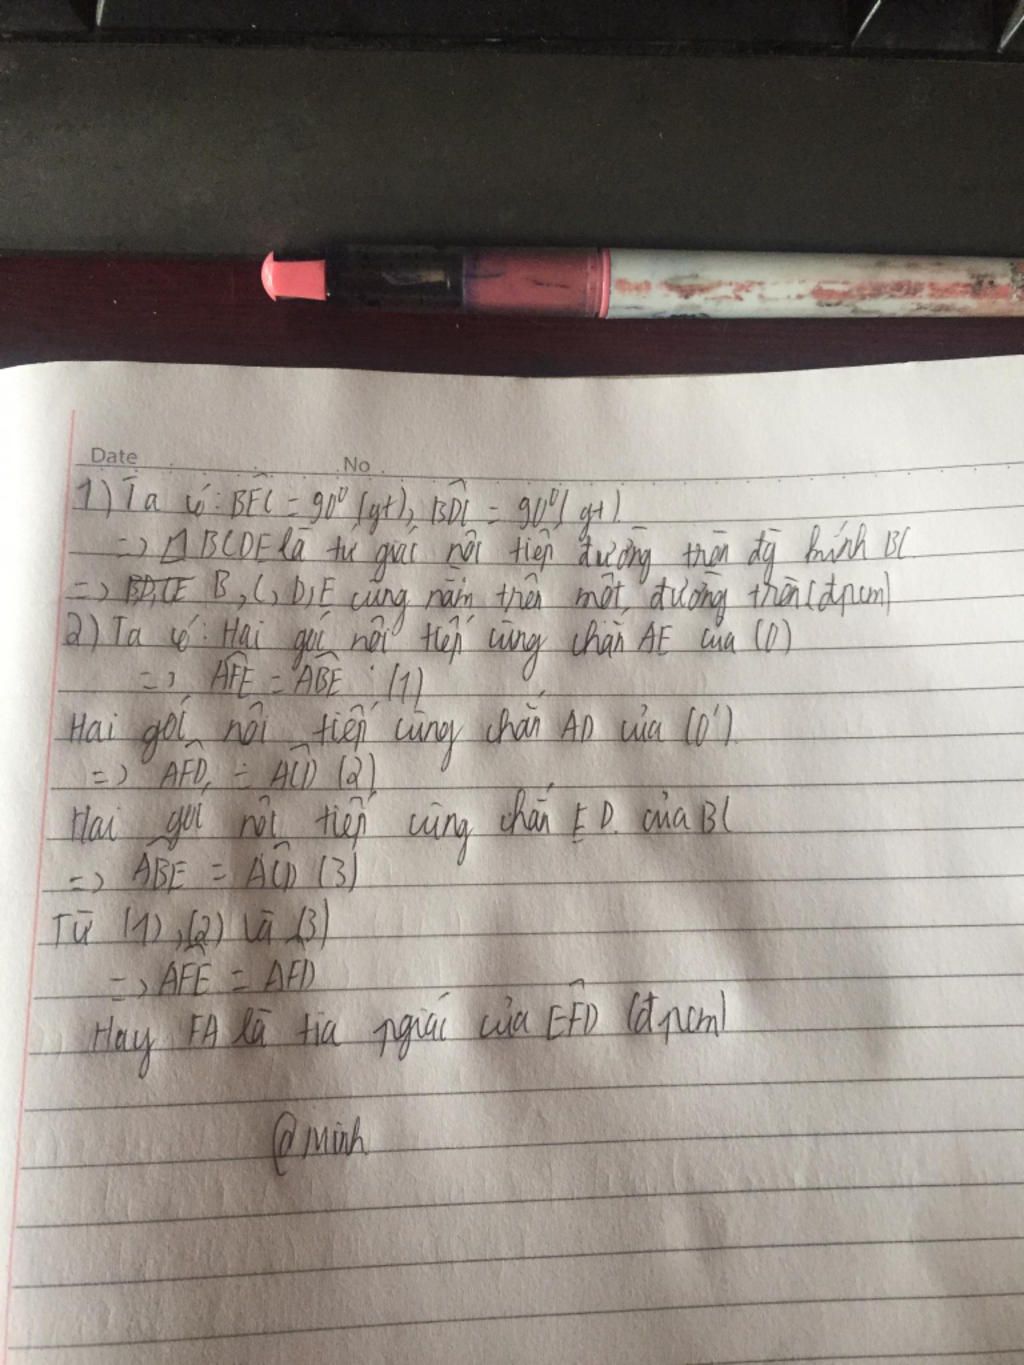 Date No
1) Ta có: BEC = 90⁰ (gt), BDC = 90⁰ (gt)
=> BCDE là tứ giác nội tiếp đường tròn đg kính BC
=> B, C, D, E cùng nằm trên một đường tròn (đpcm)
2) Ta có: Hai góc nội tiếp cùng chắn AE của (O)
=> AFE = ABE (1)
Hai góc nội tiếp cùng chắn AD của (O')
=> AFD = ACD (2)
Hai góc nội tiếp cùng chắn ED của BC
=> ABE = ACD (3)
Từ (1), (2) và (3)
=> AFE = AFD
Hay FA là tia pgiác của EFD (đpcm)
@Minh